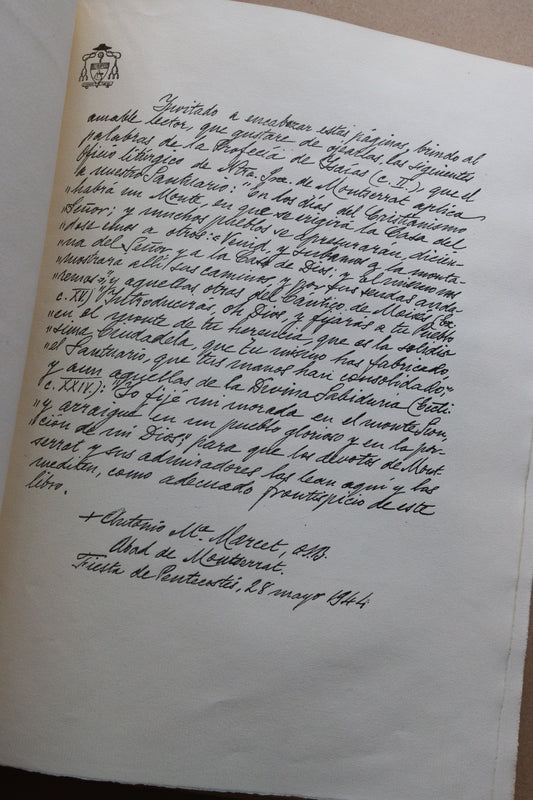 Invitado a encabezar estas páginas, brindo al
amable lector, que gustare de ojearlas, las siguientes
palabras de la Profecía de Isaías (c. II.), que el
Oficio litúrgico de Ntra. Sra. de Montserrat aplica
a nuestro Santuario: "En los días del Cristianismo
"habrá un Monte, en que se erigirá la Casa del
"Señor; y muchos pueblos se apresurarán, dicien-
"dose unos a otros: «Venid, y subamos a la monta-
"ña del Señor y a la Casa de Dios; y el mismo nos
"mostrará allí sus caminos y por sus sendas anda-
"remos»"; y aquellas otras del Cántico de Moisés (Ex.
c. XV) "Introducirás, oh Dios, y fijarás a tu Pueblo
"en el monte de tu herencia, que es la solidí-
"sima Ciudadela, que tú mismo has fabricado,
"el Santuario, que tus manos han consolidado;"
y aun aquellas de la Divina Sabiduría (Eccli.
c. XXIV): "Yo fijé mi morada en el monte Sion,
"y arraigué en un pueblo glorioso y en la por-
"ción de mi Dios"; para que los devotos de Mont-
serrat y sus admiradores las lean aquí y las
mediten, como adecuado frontispicio de este
libro.
+ Antonio Mª Marcet, O.S.B.
Abad de Montserrat.
Fiesta de Pentecostés, 28 mayo 1944